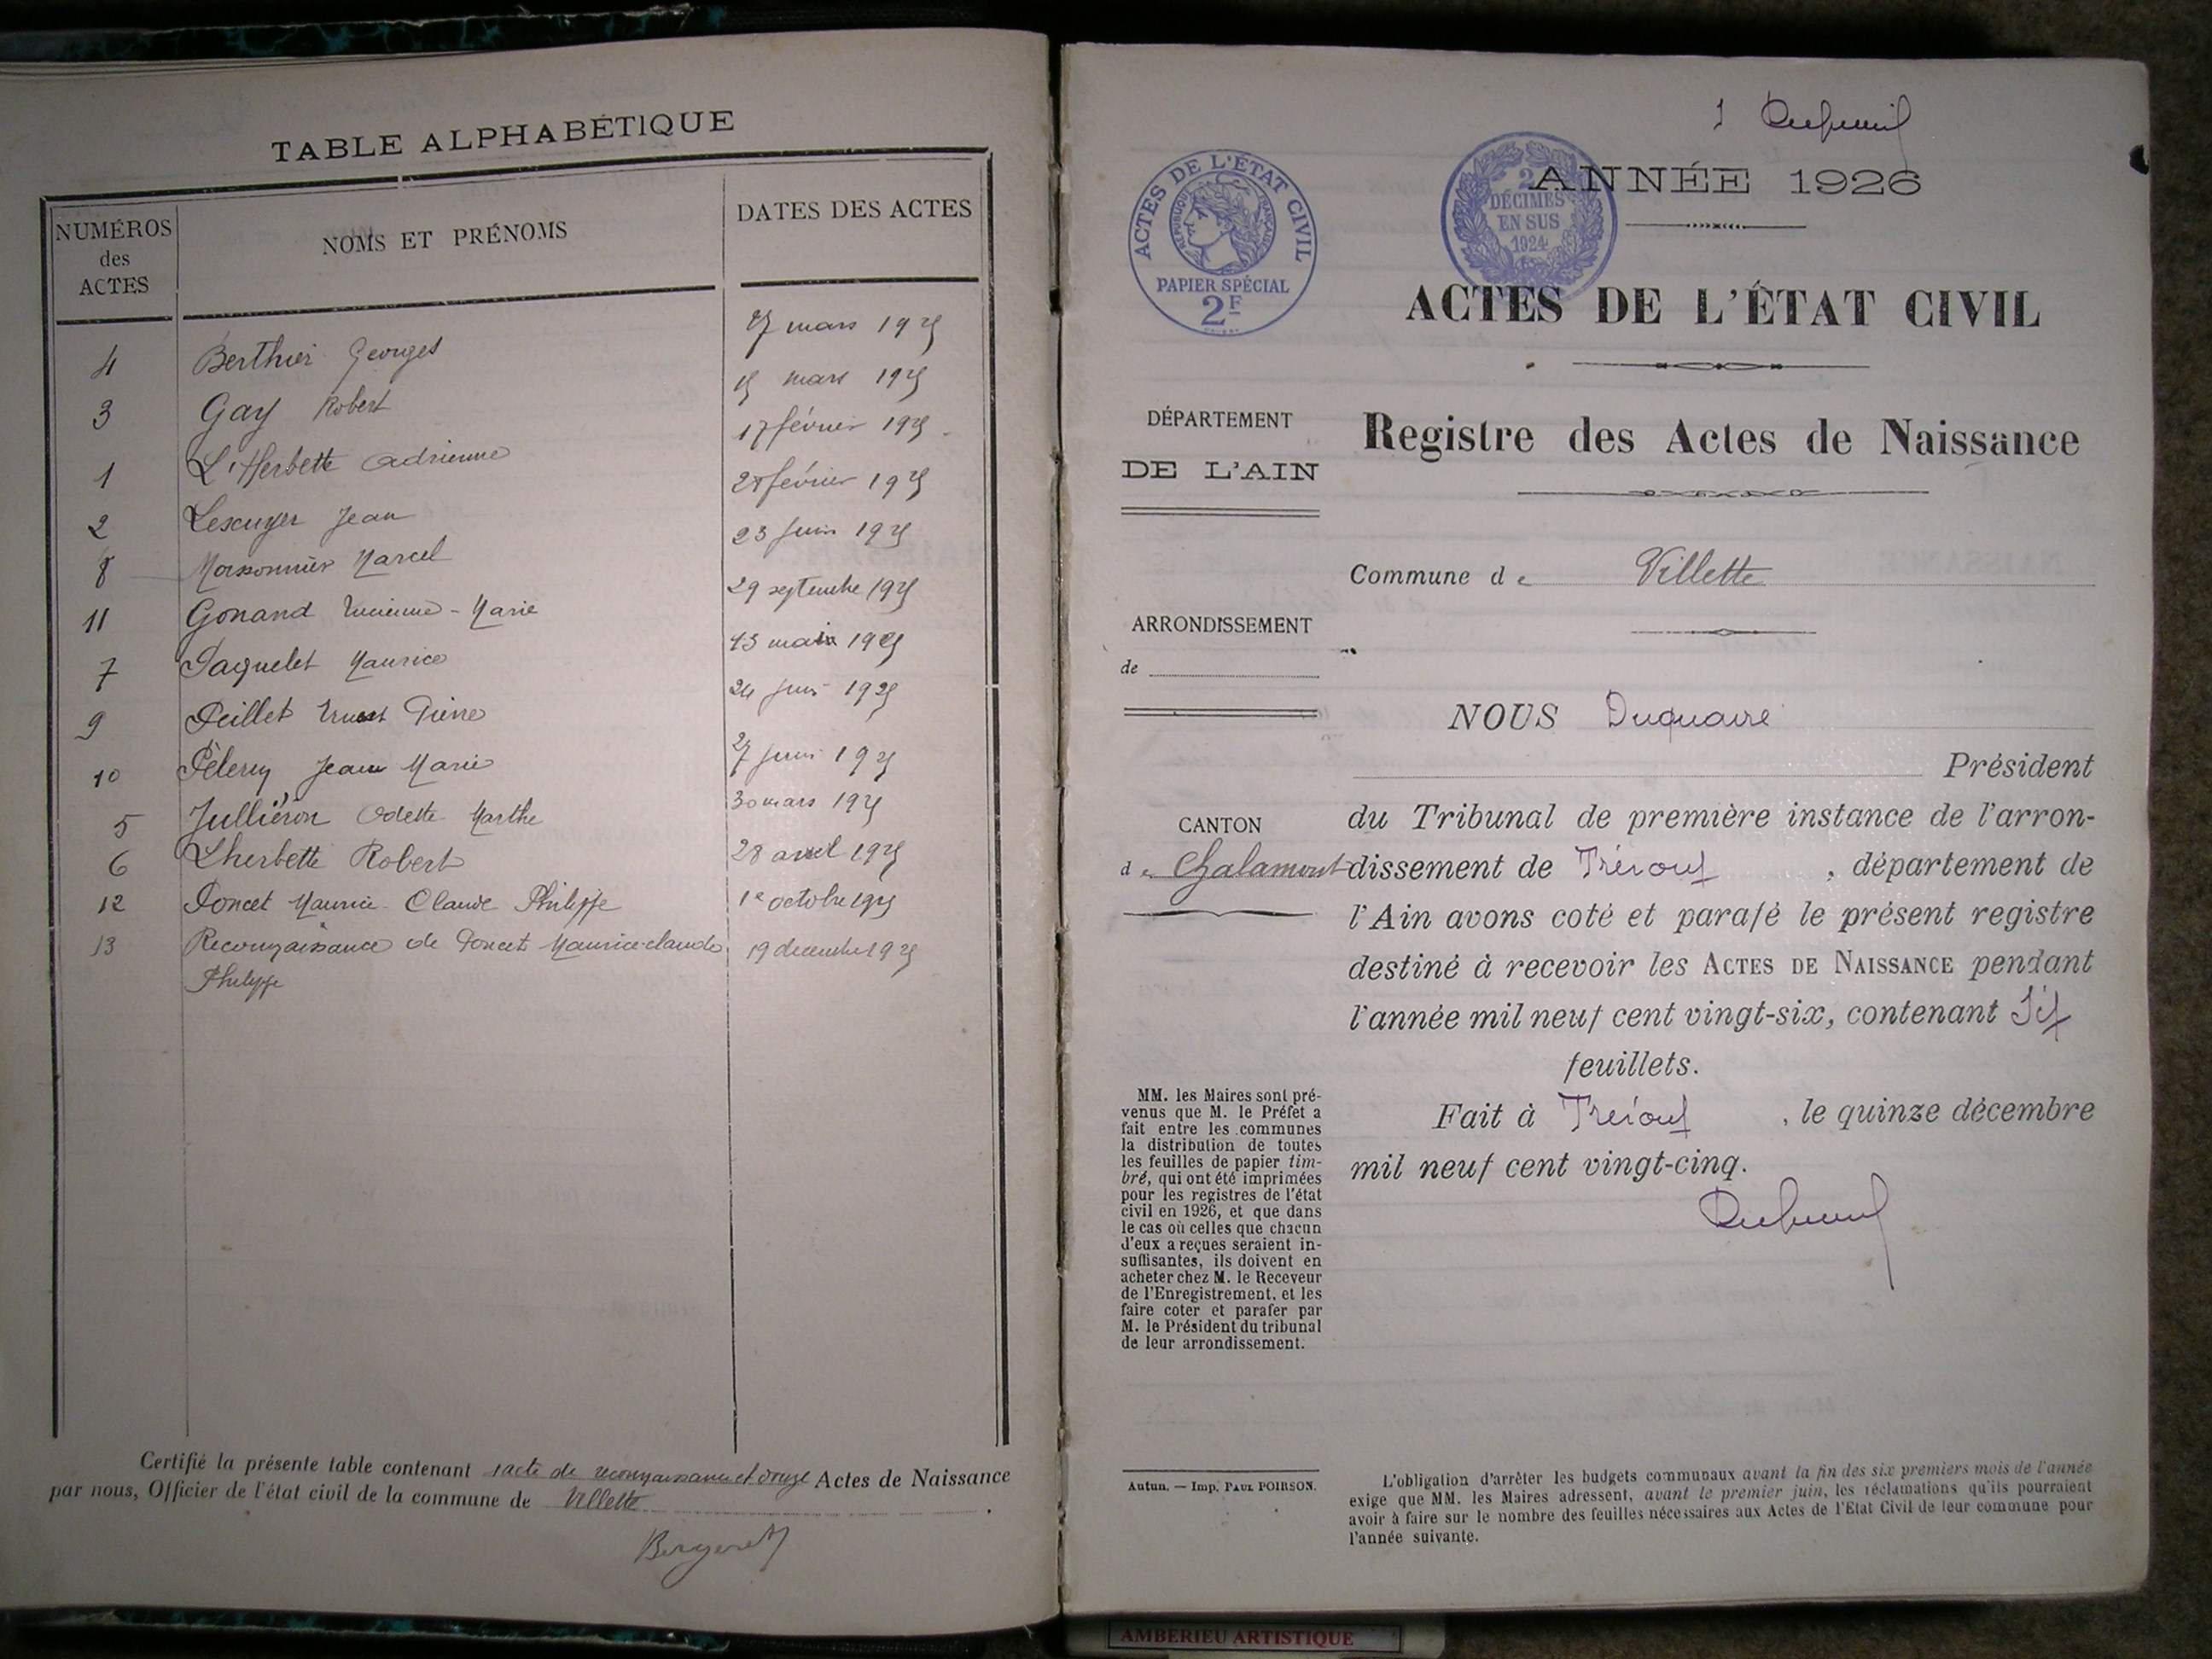 TABLE ALPHABÉTIQUE
NUMÉROS
des
ACTES
NOMS ET PRÉNOMS
DATES DES ACTES
4 Berthier Georges 27 mars 1925
3 Gay Robert 15 mars 1925
1 L'Herbette Adrienne 17 février 1925
2 Lescuyer Jean 28 février 1925
8 Moissonnier Marcel 23 juin 1925
11 Gonand Lucienne-Marie 29 septembre 1925
7 Paquelet Maurice 13 mai 1925
9 Peillet Ernest Pierre 24 juin 1925
10 Pélery Jean Marie 27 juin 1925
5 Julliéron Odette Marthe 30 mars 1925
6 Lherbette Robert 28 avril 1925
12 Poncet Maurice Claude Philippe 1e octobre 1925
13 Reconnaissance de Poncet Maurice-claude 19 decembre 1925
Philippe
Certifié la présente table contenant 1 acte de reconnaissance et douze Actes de Naissance
par nous, Officier de l'état civil de la commune de Villette
Bergeret
1
ACTES DE L'ÉTAT CIVIL
RÉPUBLIQUE FRANÇAISE
PAPIER SPÉCIAL
2F
2
DÉCIMES
EN SUS
1924
ANNÉE 1926
ACTES DE L'ÉTAT CIVIL
Registre des Actes de Naissance
DÉPARTEMENT
DE L'AIN
Commune de Villette
ARRONDISSEMENT
de
NOUS Duquaire
Président
du Tribunal de première instance de l'arron-
CANTON
de Chalamont
dissement de Trévoux, département de
l'Ain avons coté et parafé le présent registre
destiné à recevoir les ACTES DE NAISSANCE pendant
l'année mil neuf cent vingt-six, contenant Six
feuillets.
Fait à Trévoux, le quinze décembre
mil neuf cent vingt-cinq.
MM. les Maires sont pré-
venus que M. le Préfet a
fait entre les communes
la distribution de toutes
les feuilles de papier tim-
bré, qui ont été imprimées
pour les registres de l'état
civil en 1926, et que dans
le cas où celles que chacun
d'eux a reçues seraient in-
suffisantes, ils doivent en
acheter chez M. le Receveur
de l'Enregistrement, et les
faire coter et parafer par
M. le Président du tribunal
de leur arrondissement.
Autun. — Imp. PAUL POIRSON.
L'obligation d'arrêter les budgets communaux avant la fin des six premiers mois de l'année
exige que MM. les Maires adressent, avant le premier juin, les réclamations qu'ils pourraient
avoir à faire sur le nombre des feuilles nécessaires aux Actes de l'Etat Civil de leur commune pour
l'année suivante.
AMBERIEU ARTISTIQUE